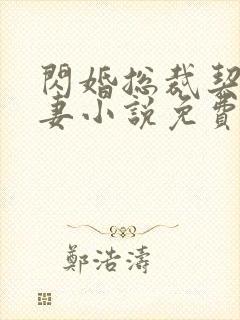 閃婚總裁契
妻小說免費
鄭浩濤